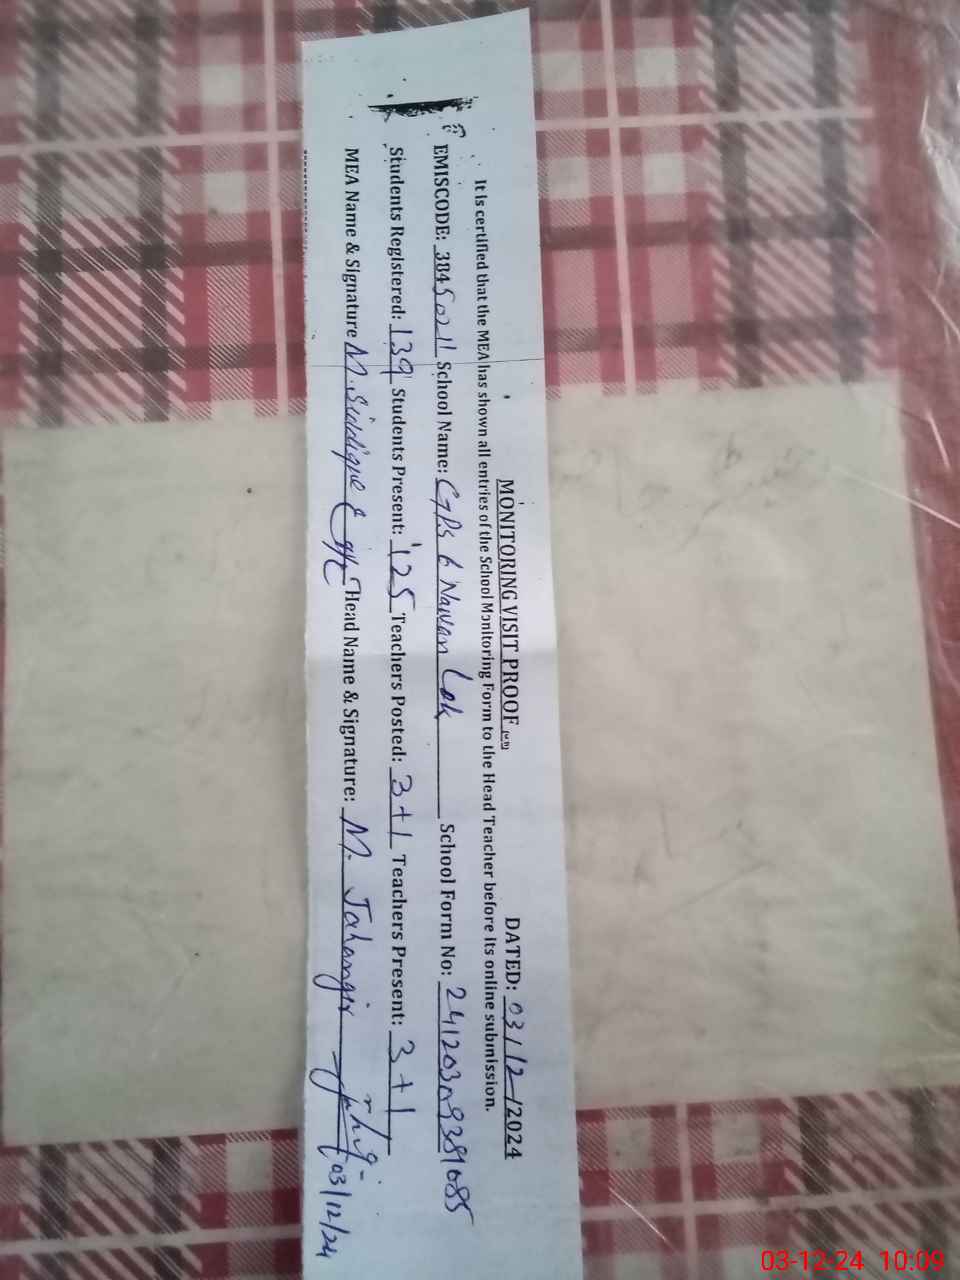 MONITORING VISIT PROOF DATED: 03/12/2024
It is certified that the MEA has shown all entries of the School Monitoring Form to the Head Teacher before its online submission.
EMISCODE: 38450211 School Name: GPS Nawan Lok School Form No:
Students Registered: 139 Students Present: 125 Teachers Posted: 3+1 Teachers Present: 3+1
MEA Name & Signature M. Siddique Head Name & Signature: M. Jahangir 03/12/24
03-12-24 10:09